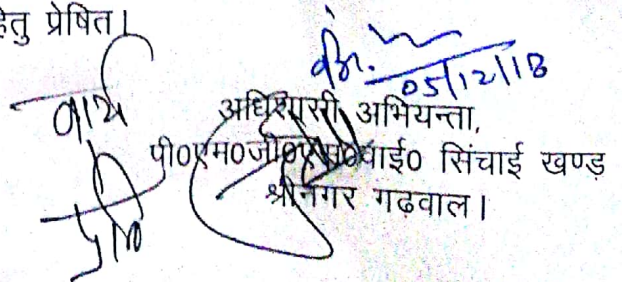 हेतु प्रेषित।
05/12/18
अधिशासी अभियन्ता,
पी०एम०जी०एस०वाई० सिंचाई खण्ड
श्रीनगर गढवाल।